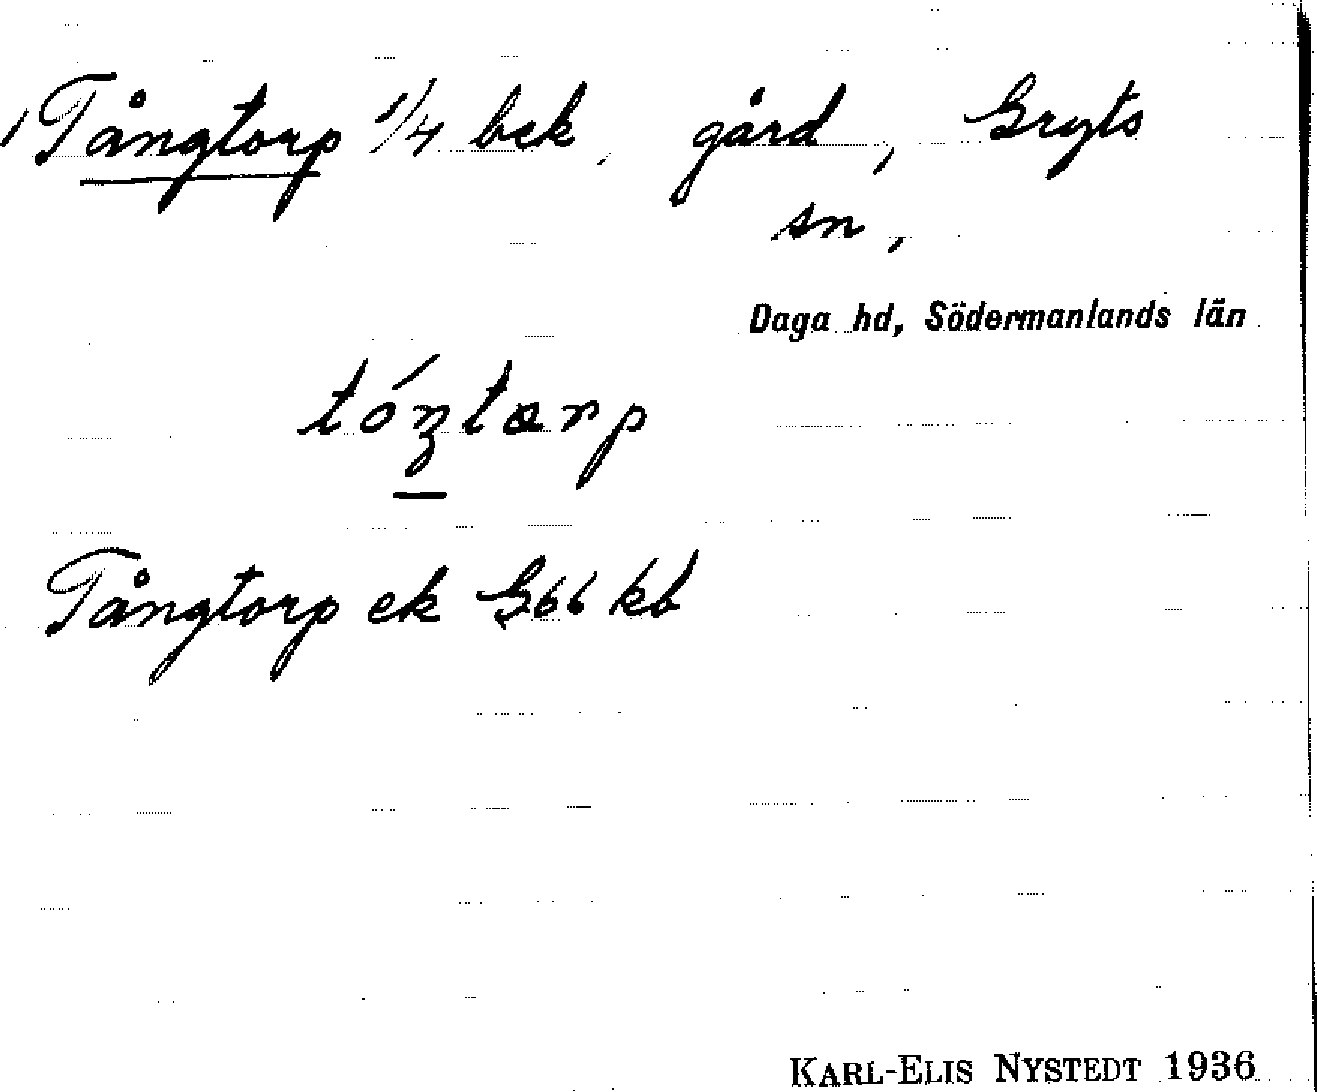 Tångtorp 1/4 bek, gård, Gryts
sn,
Daga hd, Södermanlands län
Tångtorp ek G66 kb
KARL-ELIS NYSTEDT 1936